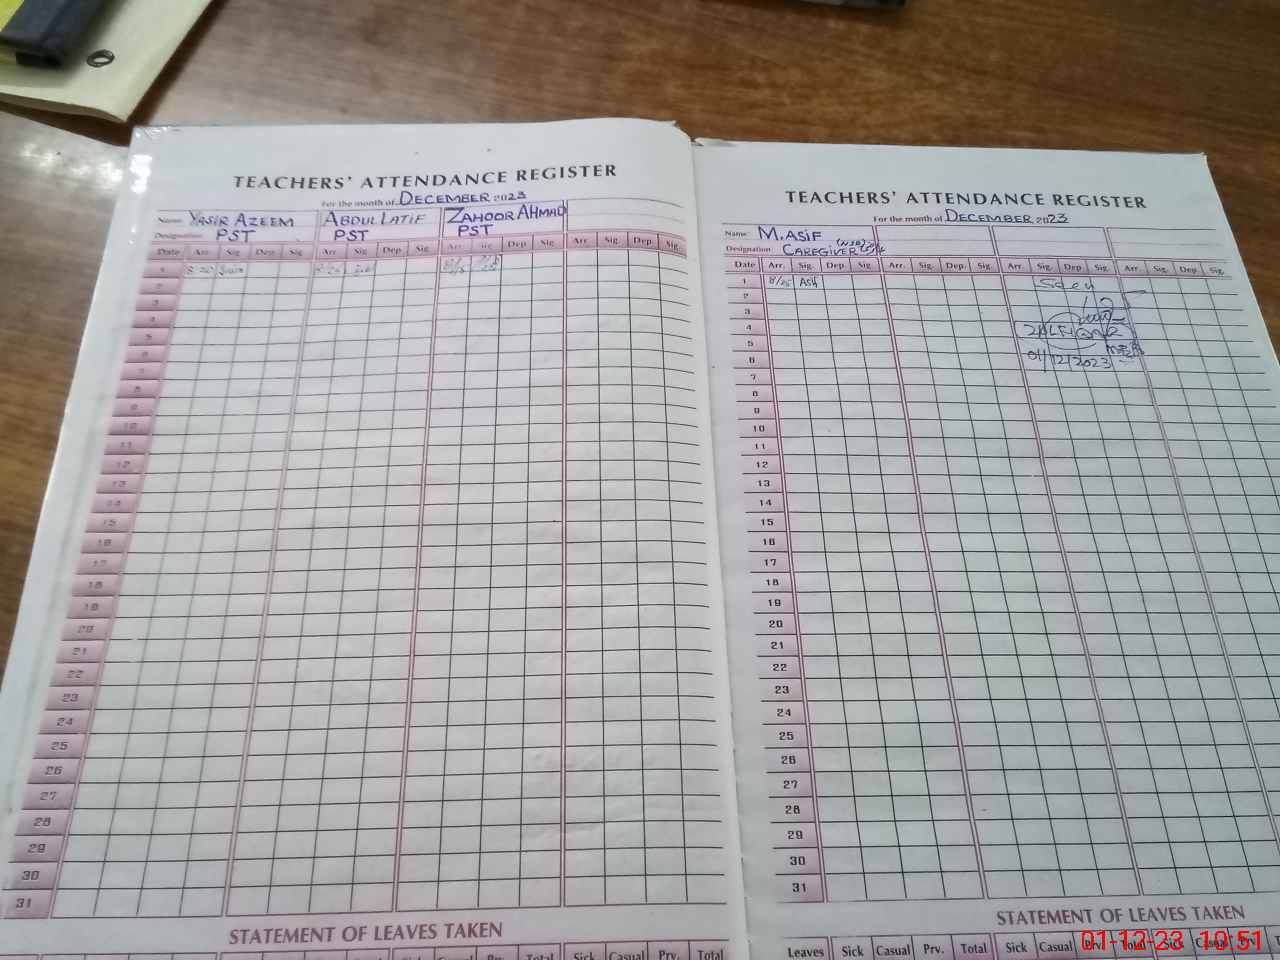 TEACHERS' ATTENDANCE REGISTER
For the month of DECEMBER 2023
Name: YASIR AZEEM ABDUL LATIF ZAHOOR AHMAD
Designation: PST PST PST
Date Arr. Sig. Dep. Sig. Arr. Sig. Dep. Sig. Arr. Sig. Dep. Sig. Arr. Sig. Dep. Sig.
1 8/20
2
3
4
5
6
7
8
9
10
11
12
13
14
15
16
17
18
19
20
21
22
23
24
25
26
27
28
29
30
31
STATEMENT OF LEAVES TAKEN
Sick Casual Prv. Total
TEACHERS' ATTENDANCE REGISTER
For the month of DECEMBER 2023
Name: M. ASIF
Designation: CAREGIVER
Date Arr. Sig. Dep. Sig. Arr. Sig. Dep. Sig. Arr. Sig. Dep. Sig. Arr. Sig. Dep. Sig.
1 8/25 Asif
2
3
4
5
6
01/12/2023
7
8
9
10
11
12
13
14
15
16
17
18
19
20
21
22
23
24
25
26
27
28
29
30
31
STATEMENT OF LEAVES TAKEN
Leaves Sick Casual Prv. Total Sick Casual Prv. Total Sick Casual
01-12-23 10:51